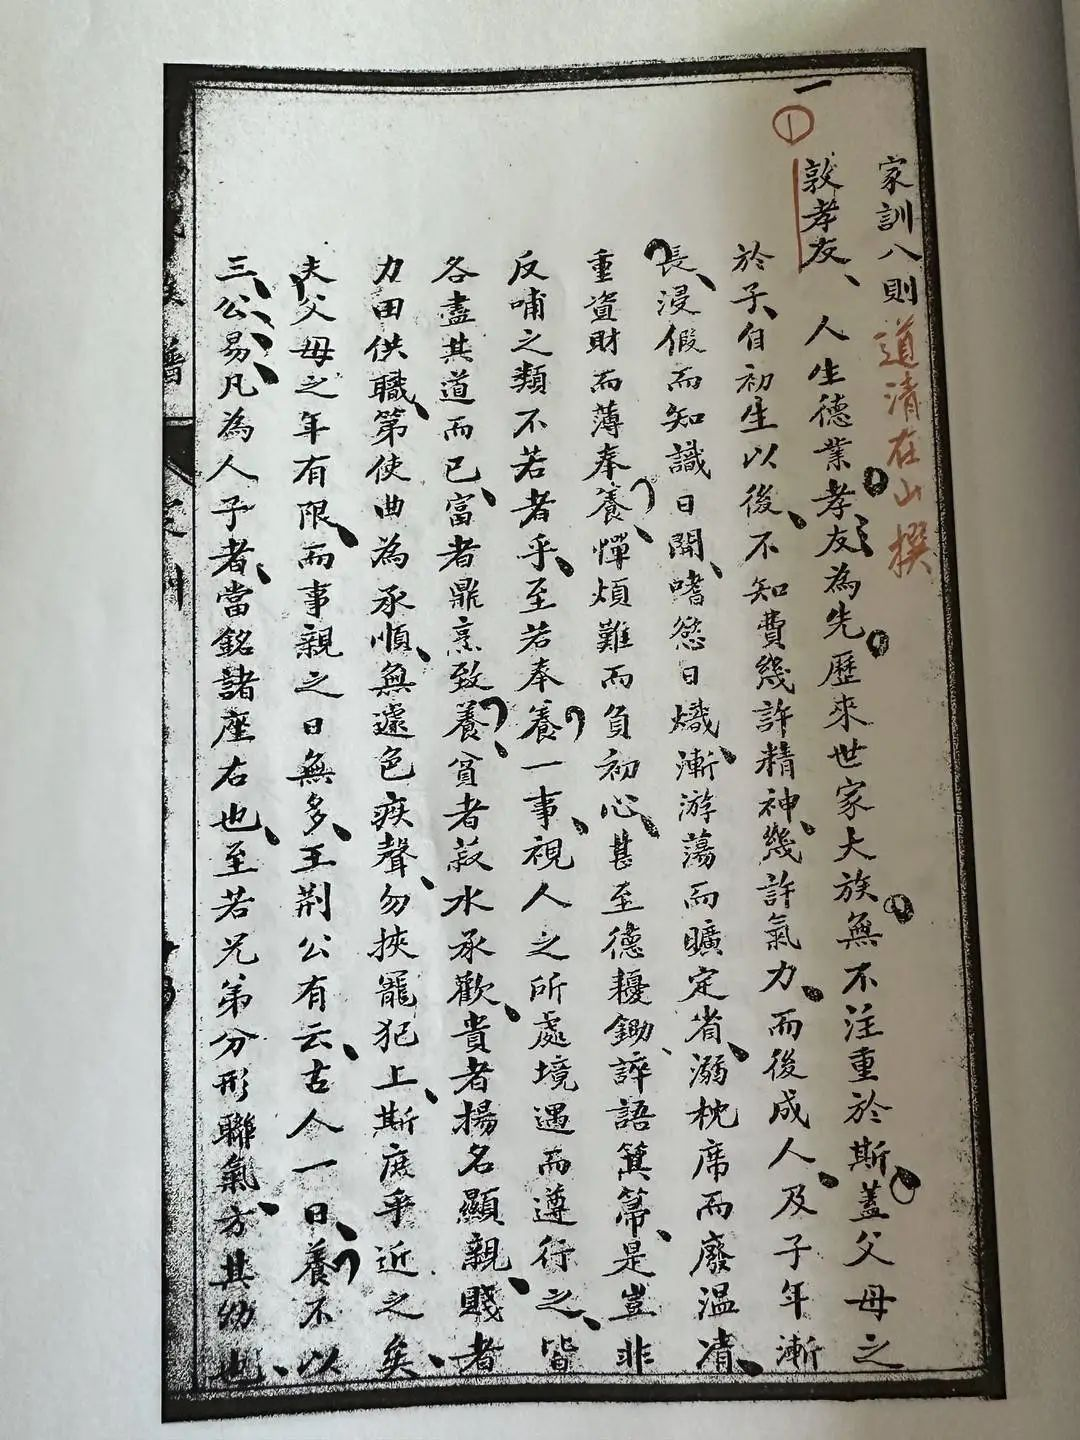 家訓八則 道清在山撰
一 ① 敦孝友、人生德業孝友為先歷來世家大族無不注重於斯蓋父母之
於子自初生以後、不知費幾許精神、幾許氣力、而後成人、及子年漸
長、浸假而知識日開、嗜慾日熾、漸游蕩而曠定省、溺枕席而廢温凊、
重資財而薄奉養、憚煩難而負初心、甚至德耰鋤、誶語箕箒、是豈非
反哺之類不若者乎、至若奉養一事、視人之所處境遇而遵行之、皆
各盡其道而已、富者鼎烹致養、貧者菽水承歡、貴者揚名顯親、賤者
力田供職、第使曲為承順、無遽色疾聲、勿挾寵犯上、斯庶乎近之矣、
夫父母之年有限、而事親之日無多、王荆公有云、古人一日、養不以
三、公、易、凡為人子者、當銘諸座右也、至若兄弟分形聯氣、方其幼也、
族譜 家訓